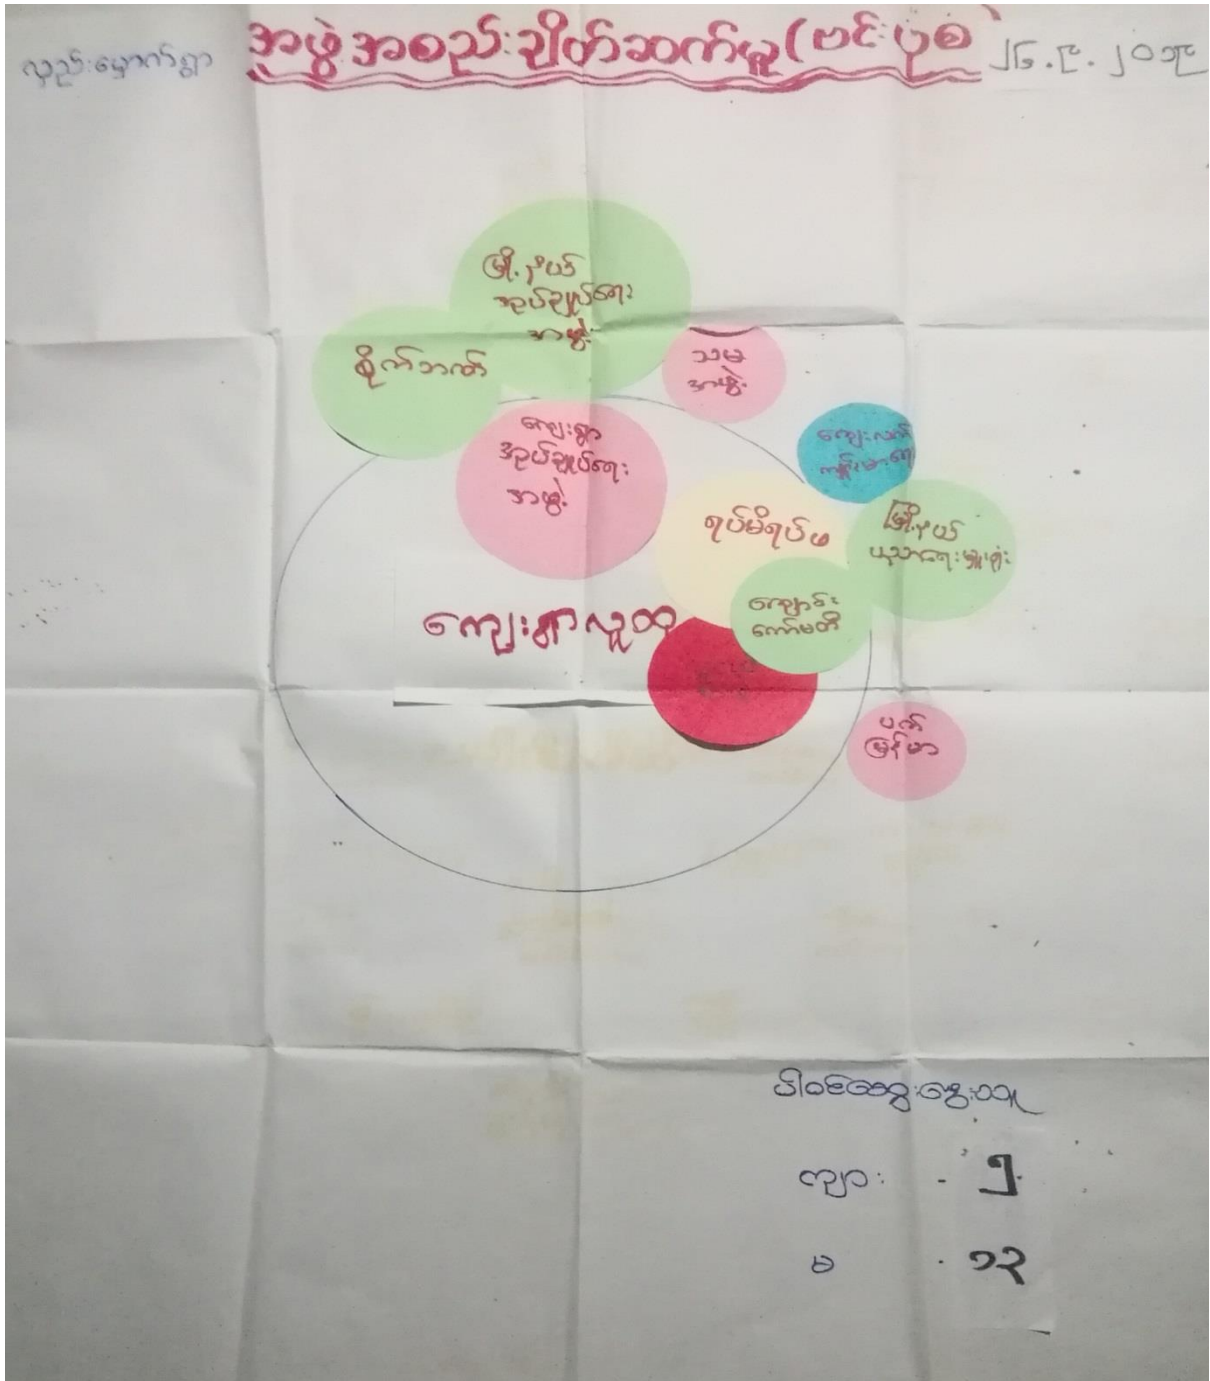 လှည်းမှောက်ရွာ
အဖွဲ့အစည်းချိတ်ဆက်မှု (ဗင်းပုံစံ
၂၆.၉.၂၀၁၉
မြို့နယ်
အုပ်ချုပ်ရေး
အဖွဲ့
စိုက်ဘဏ်
သမ
အဖွဲ့
ကျေးရွာ
အုပ်ချုပ်ရေး
အဖွဲ့
ကျေးလက်
ကျန်းမာရေး
ရပ်မိရပ်ဖ
မြို့နယ်
ပညာရေးမှူးရုံး
ကျောင်း
ကော်မတီ
ကျေးရွာလူထု
ပက်
မြန်မာ
ပါဝင်ဆွေးနွေးသူ
ကျား - ၅
မ - ၁၃